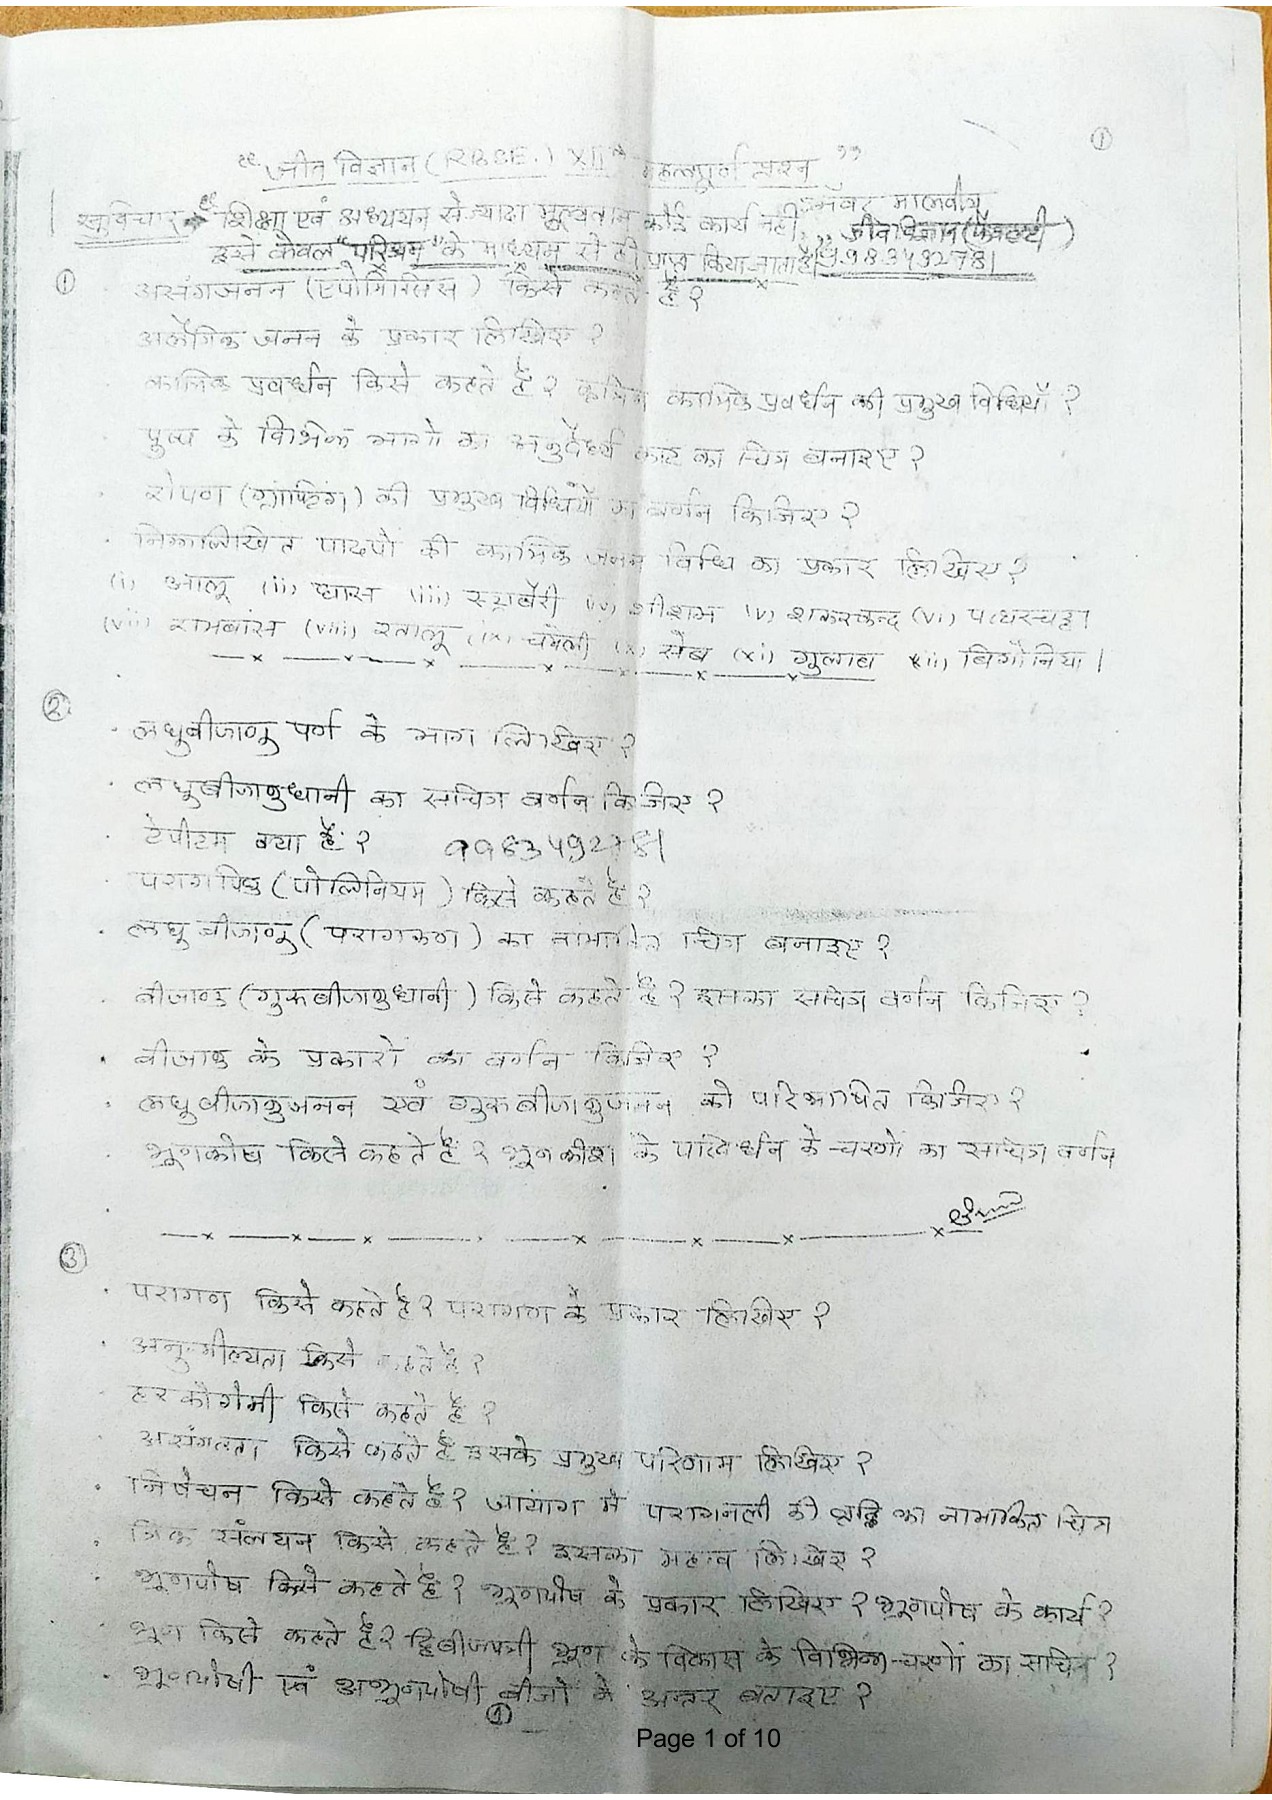 ①
“जीव विज्ञान (RBSE.) XIIth महत्वपूर्ण प्रश्न”
सुविचार → “शिक्षा एवं अध्ययन से ज्यादा मूल्यवान कोई कार्य नहीं भँवर मालवीय
इसे केवल "परिश्रम" के माध्यम से ही प्राप्त किया जाता है। जीव विज्ञान
9983492781
① असंगजनन (एपोमिक्सिस) किसे कहते है?
अलैंगिक जनन के प्रकार लिखिए?
कायिक प्रवर्धन किसे कहते है? कृत्रिम कायिक प्रवर्धन की प्रमुख विधियाँ?
पुष्प के विभिन्न भागो का अनुदैर्ध्य काट का चित्र बनाइए?
रोपण (ग्राफ्टिंग) की प्रमुख विधियों का वर्णन किजिए?
निम्नलिखित पादपो की कायिक जनन विधि का प्रकार लिखिए?
(i) आलू (ii) घास (iii) स्ट्राबेरी (iv) शीशम (v) शकरकन्द (vi) पत्थरचट्टा
(vii) रामबांस (viii) रतालू (ix) चमेली (x) सेब (xi) गुलाब (xii) बिगोनिया।
② लघुबीजाणु पर्ण के भाग लिखिए?
लघुबीजाणुधानी का सचित्र वर्णन किजिए?
टेपीटम क्या है? 9983492781
परागपिंड (पोलिनियम) किसे कहते है?
लघु बीजाणु (परागकण) का नामांकित चित्र बनाइए?
बीजाण्ड (गुरूबीजाणुधानी) किसे कहते है? इसका सचित्र वर्णन किजिए?
बीजाण्ड के प्रकारो का वर्णन किजिए?
लघुबीजाणुजनन एवं गुरूबीजाणुजनन को परिभाषित किजिए?
भ्रूणकोष किसे कहते है? भ्रूणकोश के परिवर्धन के चरणो का सचित्र वर्णन
③ परागण किसे कहते है? परागण के प्रकार लिखिए?
अनुन्मील्यता किसे कहते है?
हरकोगेमी किसे कहते है?
असंगतता किसे कहते है इसके प्रमुख परिणाम लिखिए?
निषेचन किसे कहते है? जायांग में परागनली की वृद्धि का नामांकित चित्र
त्रिक संलयन किसे कहते है? इसका महत्व लिखिए?
भ्रूणपोष किसे कहते है? भ्रूणपोष के प्रकार लिखिए? भ्रूणपोष के कार्य?
भ्रूण किसे कहते है? द्विबीजपत्री भ्रूण के विकास के विभिन्न चरणों का सचित्र?
भ्रूणपोषी एवं अभ्रूणपोषी बीजों में अन्तर बताइए?
①
Page 1 of 10